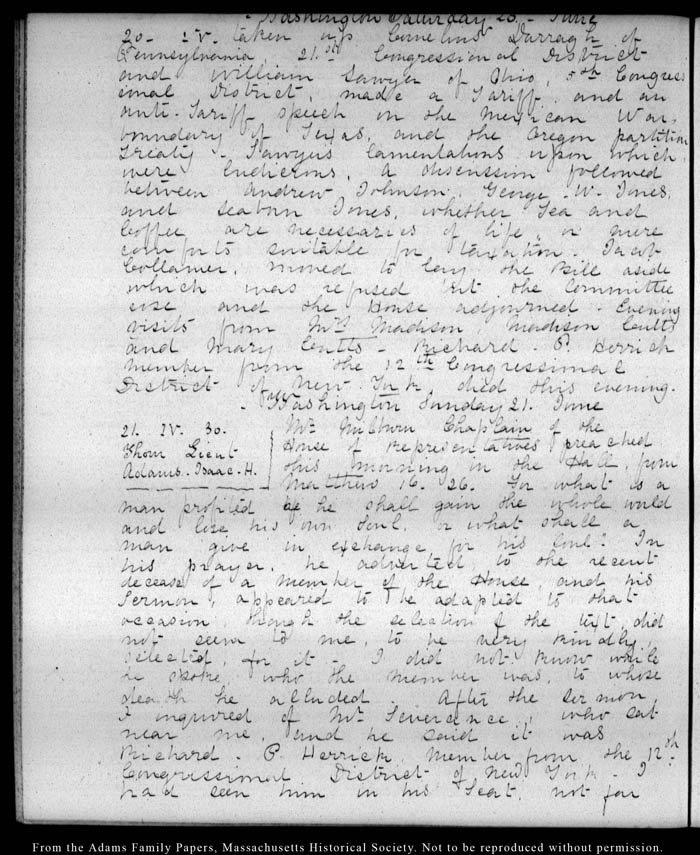 Washington Saturday 20. June
20. IV. taken up Cornelius Darragh of
Pennsylvania, 21.st Congressional District
and William Sawyer of Ohio, 5th Congress
ional District, made a Tariff, and an
anti-Tariff speech on the Mexican War,
boundary of Texas, and the Oregon partition
Treaty - Sawyers lamentations upon which,
were ludicrous, a discussion followed
between Andrew Johnson, George . W. Jones,
and Seaborn Jones, whether Tea and
Coffee are necessaries of life, or mere
comforts suitable for taxation. Jacob
Collamer, moved to lay the Bill aside
which was refused but the Committee
rose and the House adjourned - Evening
visits from Mrs Madison, Madison Cutts
and Mary Cutts - Richard . P. Herrick
member from the 12th Congressional
District of New York, died this evening.
Washington Sunday 21. June
21. IV. 30. Mr Milburn Chaplain of the
Lieut House of Representatives preached
Adams. Isaac. H. this morning in the Hall, from
Matthew 16. 26. For what is a
man profited if he shall gain the whole world
and lose his own Soul, or what shall a
man give in exchange for his Soul? In
his prayer, he adverted to the recent
decease of a member of the House, and his
Sermon, appeared to be adapted to that
occasion, though the selection of the text, did
not seem to me, to be very kindly,
selected, for it - I did not know while
he spoke who the member was, to whose
death he alluded. After the sermon,
I inquired of Mr Severance, who sat
near me, and he said it was
Richard . P. Herrick, member from the 12th
Congressional District of New York - I
had seen him in his Seat, not far
From the Adams Family Papers, Massachusetts Historical Society. Not to be reproduced without permission.